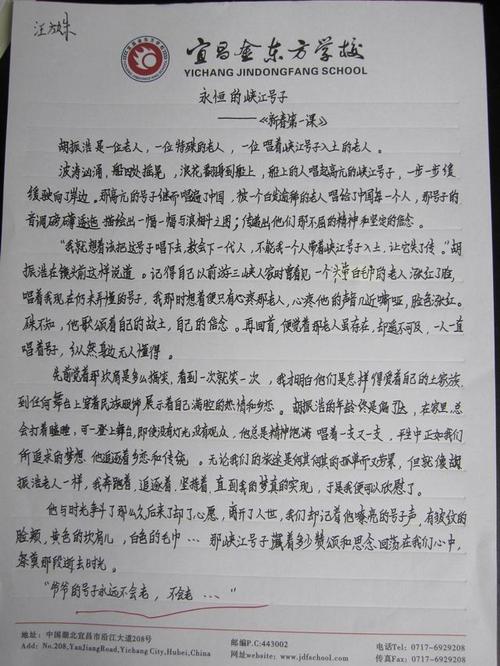 汪放珠
宜昌金东方学校
YICHANG JINDONGFANG SCHOOL
永恒的峡江号子
——《新春第一课》
胡振浩是一位老人，一位特殊的老人，一位唱着峡江号子入土的老人。
波涛汹涌，船四处摇晃，浪花翻身到船上，船上的人唱起高亢的峡江号子，一步一步缓
缓驶向了岸边。那高亢的号子继而唱遍了中国，被一个白发沧桑的老人唱给了中国每一个人，那号子的
音调磅礴逶迤 描绘出一幅一幅与浪相斗之图；传递出他们那不屈的精神和坚定的信念。
“我就想着该把这号子唱下去，教会下一代人，不能我一个人带着峡江号子入土，让它失了传。”胡
振浩在镜头前这样说道。记得自己以前游三峡人家时曾看见一个头带白毛巾的老人涨红了脸，
唱着我现在仍未弄懂的号子，我那时想着便只有心疼那老人，心疼他的声音几近嘶哑，脸色涨红。
殊不知，他歌颂着自己的故土，自己的信念。再回首，便觉着那老人虽存在，却遥不可及，一人一直
唱着号子，纵然身边无人懂得。
先前觉着那坎肩是多么搞笑，看到一次就笑一次，我才明白他们是怎样得爱着自己的土家族
到任何舞台上穿着民族服饰 展示着自己满腔的热情和乡恋。胡振浩的年龄终是偏大，在家里，总
会打着瞌睡，可一登上舞台，即使没有灯光没有观众，他总是精神饱满 唱着一支又一支，平生中正如我们
所追求的梦想 他追逐着乡恋和传统。无论我们的旅途是何其何其的孤单而又苦累，但就像胡
振浩老人一样，我奔跑着，追逐着，坚持着，直到我的梦真的实现，于是我便可以欣慰了。
他与时光争斗了那么久后来了却了心愿，离开了人世，我们却记着他嘹亮的号子声，有皱纹的
脸颊，黄色的坎肩儿，白色的毛巾…那峡江号子藏着多少赞颂和思念回荡在我们心中，
祭奠那段逝去时光。
“爷爷的号子永远不会老，不会老……”
地址：中国湖北宜昌市沿江大道208号
邮编P.C:443002
电话Tel: 0717-6929208
Add: No.208,YanJiangRoad,Yichang City,Hubei,China
网址: www.jdfschool.com
传真Fax: 0717-6929208